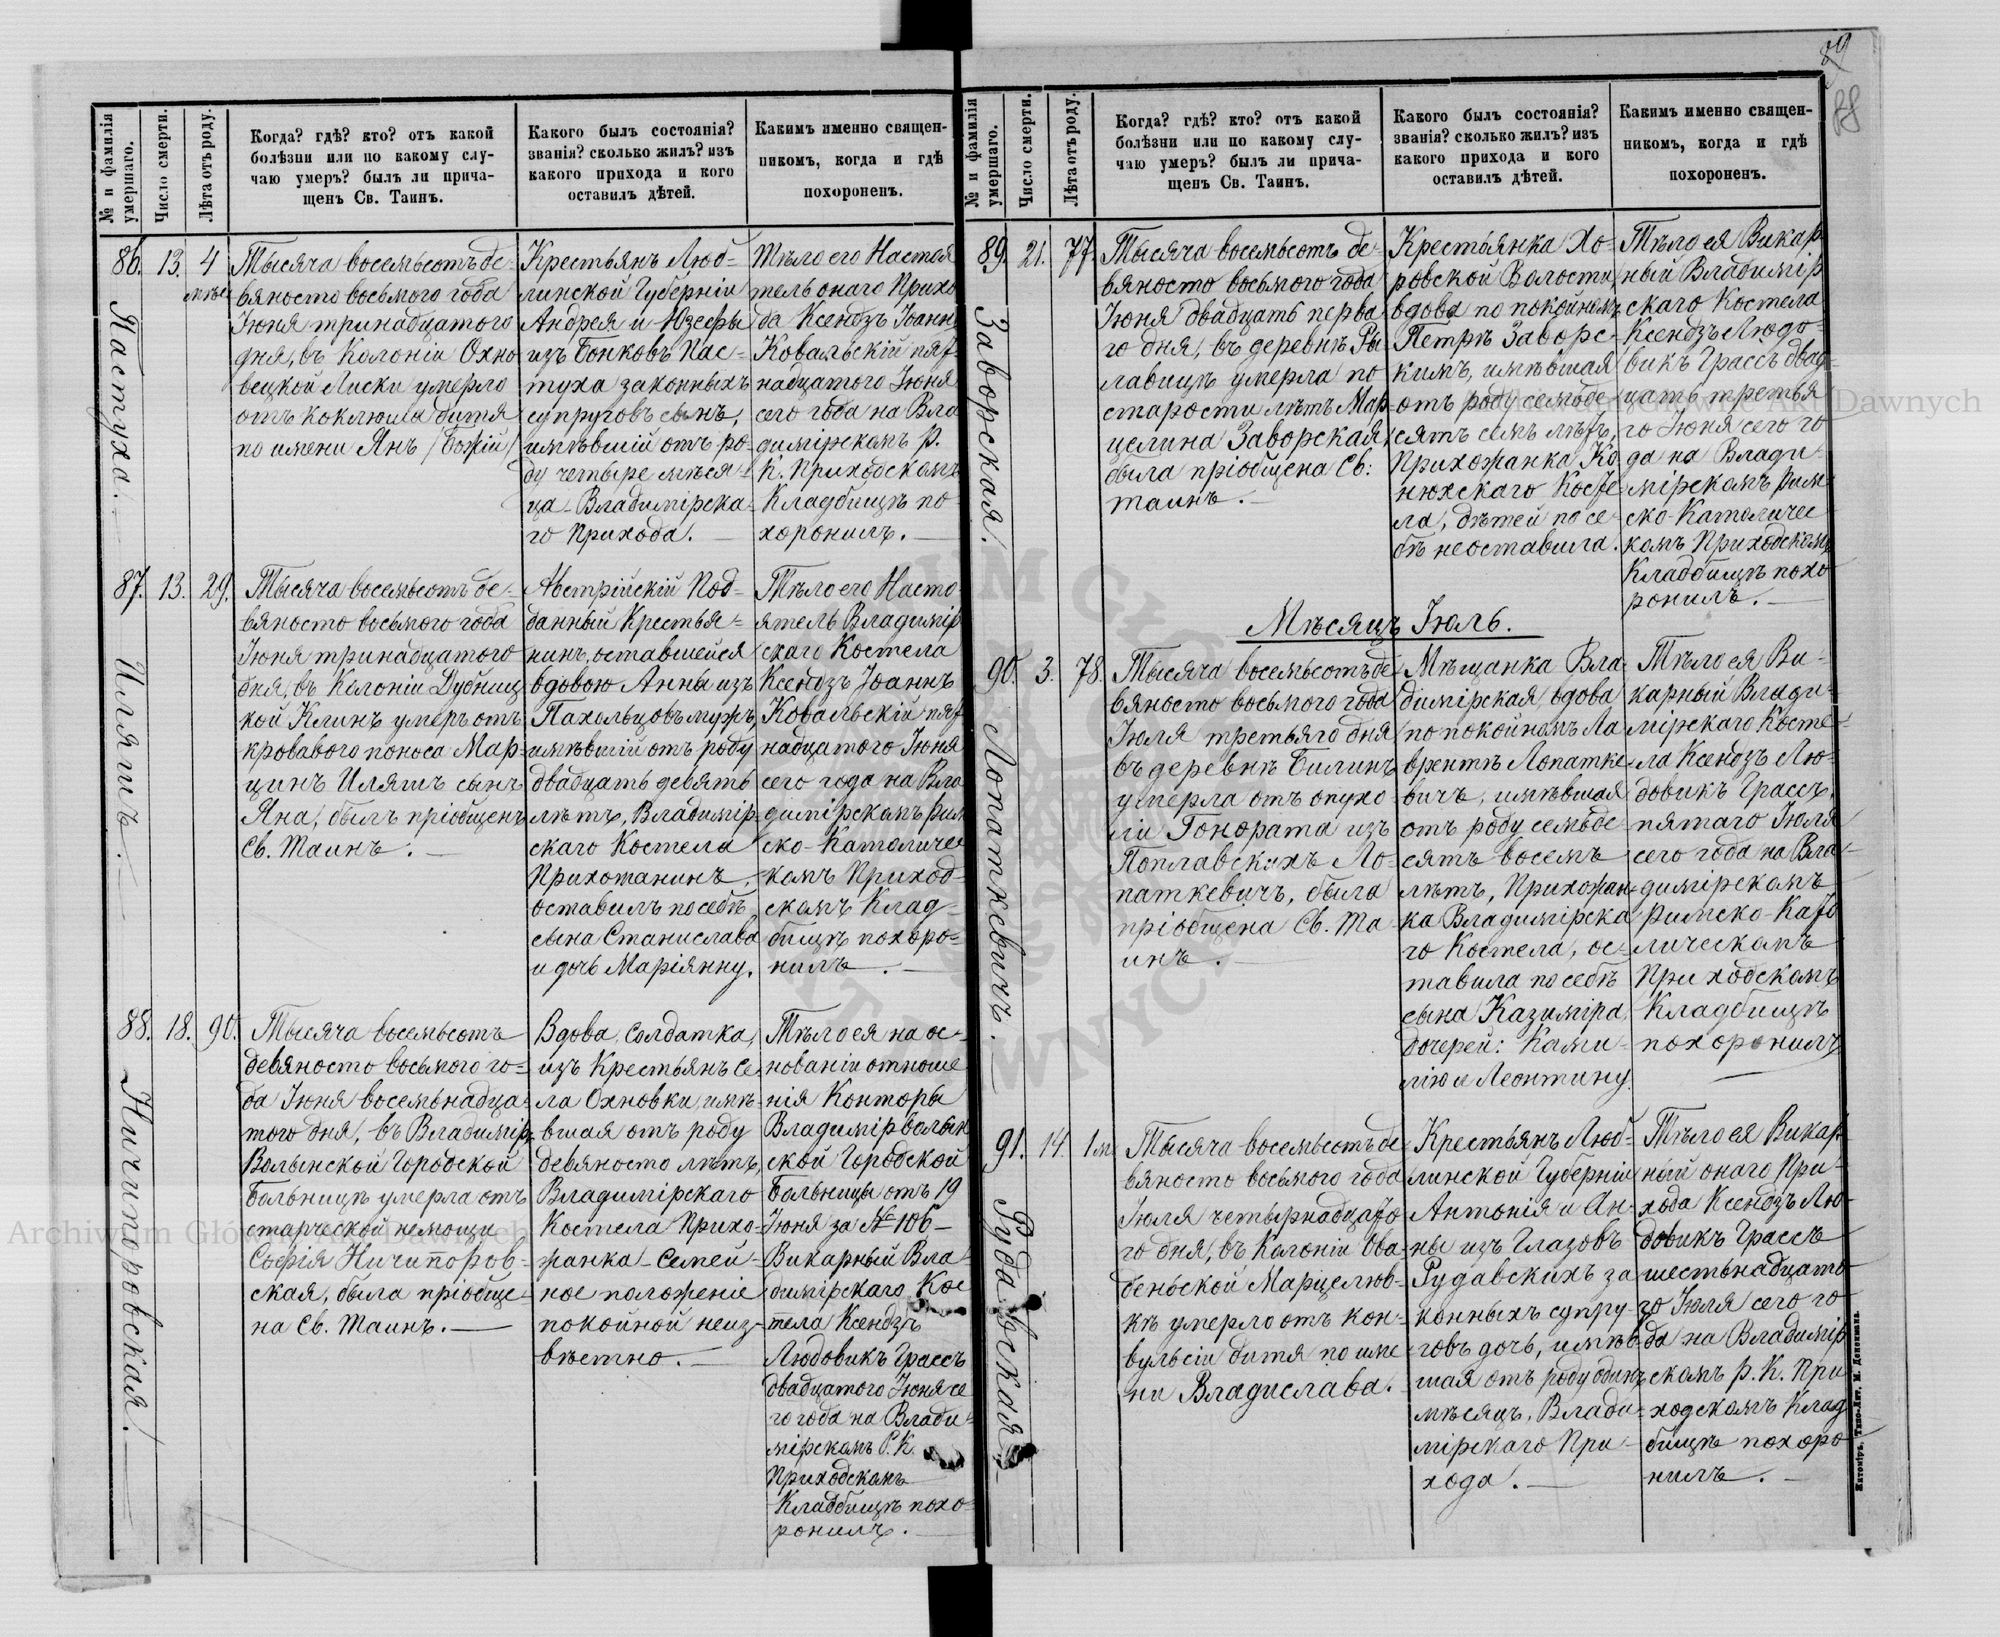 89
88
№ и фамилія умершаго.
Число смерти.
Лѣта отъ роду.
Когда? гдѣ? кто? отъ какой
болѣзни или по какому слу-
чаю умеръ? былъ ли прича-
щенъ Св. Таинъ.
Какого былъ состоянія?
званія? сколько жилъ? изъ
какого прихода и кого
оставилъ дѣтей.
Какимъ именно священ-
никомъ, когда и гдѣ
похороненъ.
86.
Пастуха.
13.
4
мѣс
Тысяча восемьсотъ де-
вяносто восьмого года
Іюня тринадцатого
дня, въ Колоніи Охно
вецкой Лиски умерло
отъ коклюша дитя
по имени Янъ /Божій/
Крестьянъ Люб-
линской Губерніи
Андрея и Юзефы
изъ Бонковъ Пас-
туха законныхъ
супруговъ сынъ,
имѣвшій отъ ро-
ду четыре мѣся-
ца Владимірска-
го Прихода.
Тѣло его Настоя
тель онаго Прихо
да Ксендзъ Іоаннъ
Ковальскій пят-
надцатого Іюня
сего года на Вла
димірскомъ Р.
К. Приходскомъ
Кладбищѣ по-
хоронилъ.
87.
Иляшъ.
13.
29.
Тысяча восемьсотъ де-
вяносто восьмого года
Іюня тринадцатого
дня, въ Колоніи Дубниц
кой Клинъ умеръ отъ
кроваваго поноса Мар-
цинъ Иляшъ сынъ
Яна, былъ пріобщенъ
Св. Таинъ.
Австрійскій Под-
данный Крестья-
нинъ, оставшейся
вдовою Анны изъ
Пахольцовъ мужъ,
имѣвшій отъ роду
двадцать девять
лѣтъ, Владимір-
скаго Костела
Прихожанинъ,
оставилъ по себѣ
сына Станислава
и дочь Маріянну.
Тѣло его Насто
ятель Владимір
скаго Костела
Ксендзъ Іоаннъ
Ковальскій пят
надцатого Іюня
сего года на Вла
димірскомъ Рим
ско-Католичес
комъ Приход-
скомъ Клад-
бищѣ похоро-
нилъ.
88.
Ничипоровская.
18.
90.
Тысяча восемьсотъ
девяносто восьмого го-
да Іюня восемьнадца-
того дня, въ Владимір-
Волынской Городской
Больницѣ умерла отъ
старческой немощи
Софія Ничипоров-
ская, была пріобще-
на Св. Таинъ.
Вдова, солдатка,
изъ Крестьянъ се-
ла Охновки, имѣ-
вшая отъ роду
девяносто лѣтъ,
Владимірскаго
Костела Прихо-
жанка. Семей-
ное положеніе
покойной неиз-
вѣстно.
Тѣло ея на ос-
нованіи отноше
нія Конторы
Владимірволын
ской Городской
Больницы отъ 19
Іюня за № 106 –
Викарный Вла-
димірскаго Кос
тела Ксендзъ
Людовикъ Грассъ
двадцатого Іюня се
го года на Влади-
мірскомъ Р. К.
Приходскомъ
Кладбищѣ похо-
ронилъ.
№ и фамилія умершаго.
Число смерти.
Лѣта отъ роду.
Когда? гдѣ? кто? отъ какой
болѣзни или по какому слу-
чаю умеръ? былъ ли прича-
щенъ Св. Таинъ.
Какого былъ состоянія?
званія? сколько жилъ? изъ
какого прихода и кого
оставилъ дѣтей.
Какимъ именно священ-
никомъ, когда и гдѣ
похороненъ.
89.
Заворская.
21.
77.
Тысяча восемьсотъ де-
вяносто восьмого года
Іюня двадцать перва
го дня, въ деревнѣ Ры
лавицѣ умерла по
старости лѣтъ Мар-
целина Заворская,
была пріобщена Св:
таинъ.
Крестьянка Хо-
ровской Волости,
вдова по покойномъ
Петрѣ Заворс-
кимъ, имѣвшая
отъ роду семьде-
сятъ семь лѣтъ,
Прихожанка Ко
нюхскаго Косте-
ла, дѣтей по се-
бѣ неоставила.
Тѣло ея Викар
ный Владимір
скаго Костела
Ксендзъ Людо-
викъ Грассъ двад-
цать третья
го Іюня сего го
да на Влади-
мірскомъ Рим-
ско-Католичес
комъ Приходскомъ
Кладбищѣ похо-
ронилъ.
Мѣсяцъ Іюль.
90.
Лопаткевичъ.
3.
78.
Тысяча восемьсотъ де
вяносто восьмого года
Іюля третьяго дня
въ деревнѣ Билинъ
умерла отъ опухо
ли Гонората изъ
Поплавскихъ Ло-
паткевичъ, была
пріобщена Св. Та-
инъ.
Мѣщанка Вла-
димірская, вдова
по покойномъ Ла
врентѣ Лопатке-
вичъ, имѣвшая
отъ роду семьде-
сятъ восемь
лѣтъ, Прихожан-
ка Владимірска
го Костела, ос-
тавила по себѣ
сына Казиміра,
дочерей: Ками-
лію и Леонтину.
Тѣло ея Ви-
карный Влади-
мірскаго Косте-
ла Ксендзъ Лю-
довикъ Грассъ,
пятаго Іюля
сего года на Вла-
димірскомъ
Римско-Като
лическомъ
Приходскомъ
Кладбищѣ
похоронилъ
91.
Рудавская.
14.
1м
Тысяча восемьсотъ де
вяносто восьмого года
Іюля четырнадцато
го дня, въ Колоніи Ова-
деньской Марцелюв-
кѣ умерло отъ кон-
вульсіи дитя по име
ни Владислава.
Крестьянъ Люб-
линской Губерніи
Антонія и Ан-
ны изъ Глазовъ
Рудавскихъ за
конныхъ супру-
говъ дочь, имѣв-
шая отъ роду одинъ
мѣсяцъ, Влади-
мірскаго При-
хода.
Тѣло ея Викар-
ный онаго При-
хода Ксендзъ Лю-
довикъ Грассъ
шестьнадцато
го Іюля сего го-
да на Владимір
скомъ Р. К. При
ходскомъ Клад
бищѣ похоро
нилъ.
Житоміръ, Типо-Лит. М. Дененмана.
Archiwum Główne Akt Dawnych